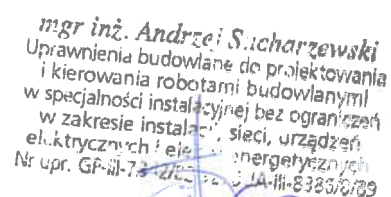 mgr inż. Andrzej Sucharzewski
Uprawnienia budowlane do projektowania
i kierowania robotami budowlanymi
w specjalności instalacyjnej bez ograniczeń
w zakresie instalacji, sieci, urządzeń
elektrycznych i energetycznych
Nr upr. GP-III-73 8383/0/89